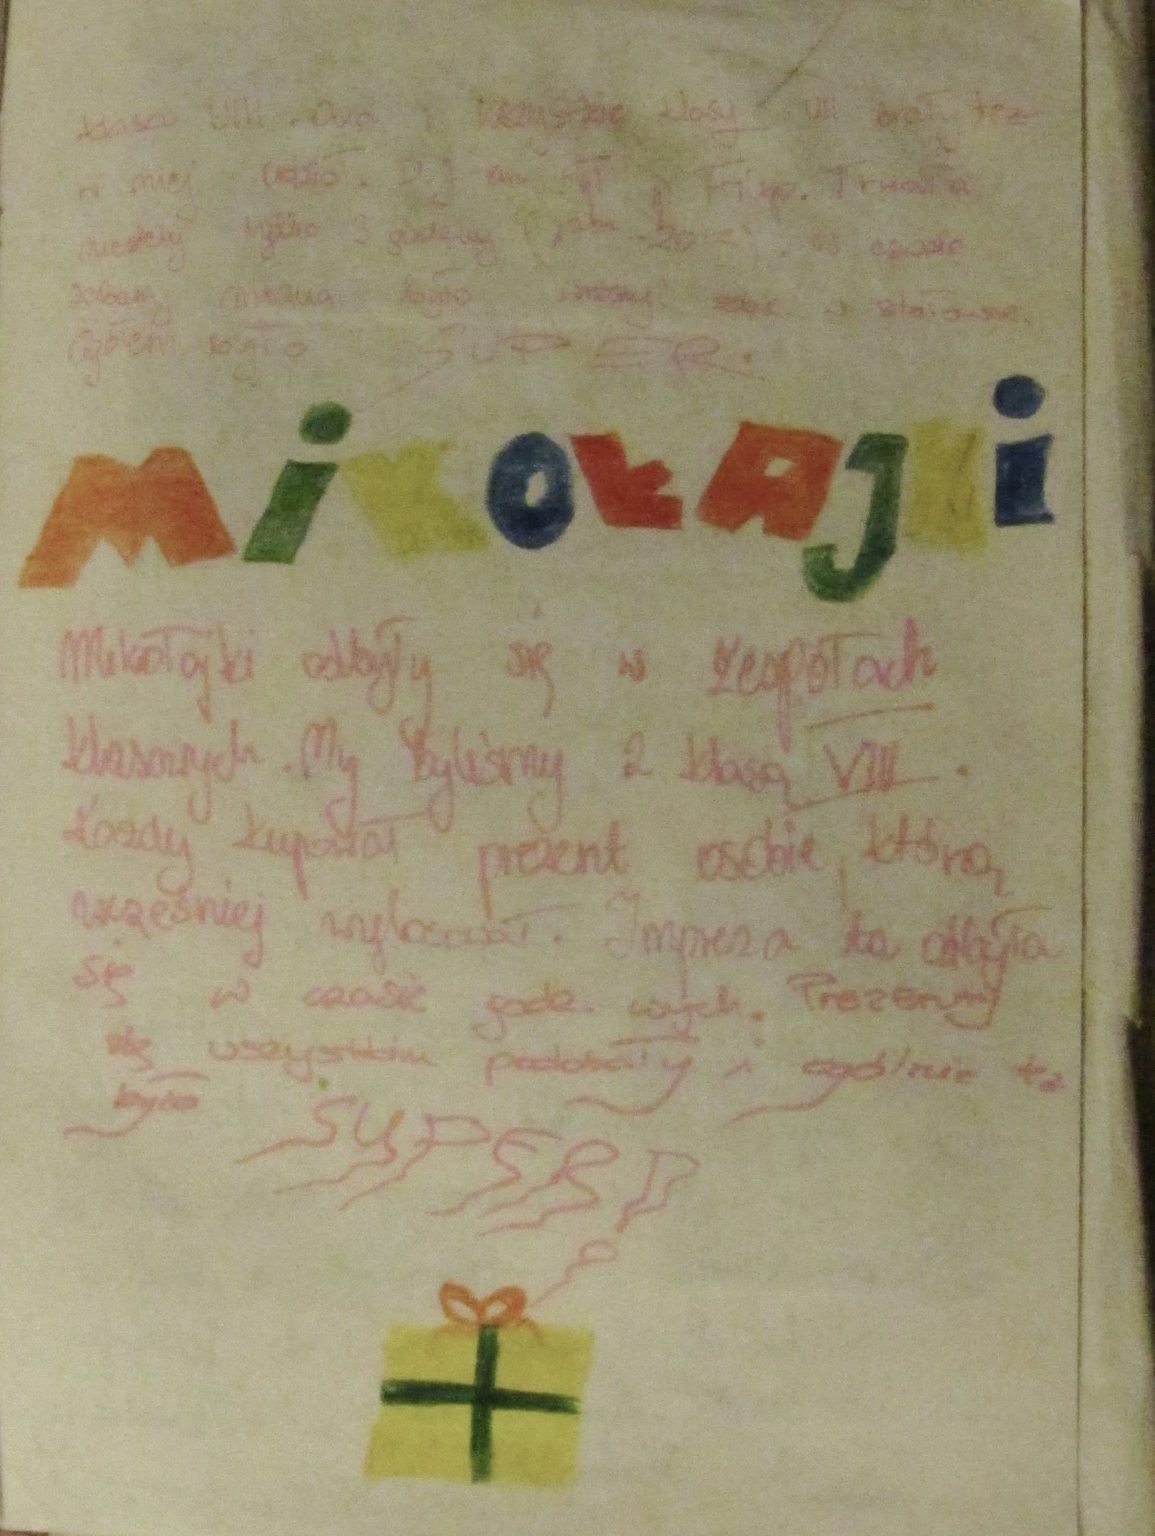 klasa VIII. Ona i wszystkie klasy VII brały też
w niej udział. D.J-em był Filip. Trwała
niestety tylko 3 godziny (). W czasie
zabawy można było w stołówce.
Ogółem było SUPER.
MIKOŁAJKI
Mikołajki odbyły się w zespołach
klasowych. My byliśmy z klasą VIII.
Każdy kupował prezent osobie, którą
wcześniej wylosował. Impreza ta odbyła
się w czasie godz. wych. Prezenty
się wszystkim podobały i ogólnie też
było
SUPER!